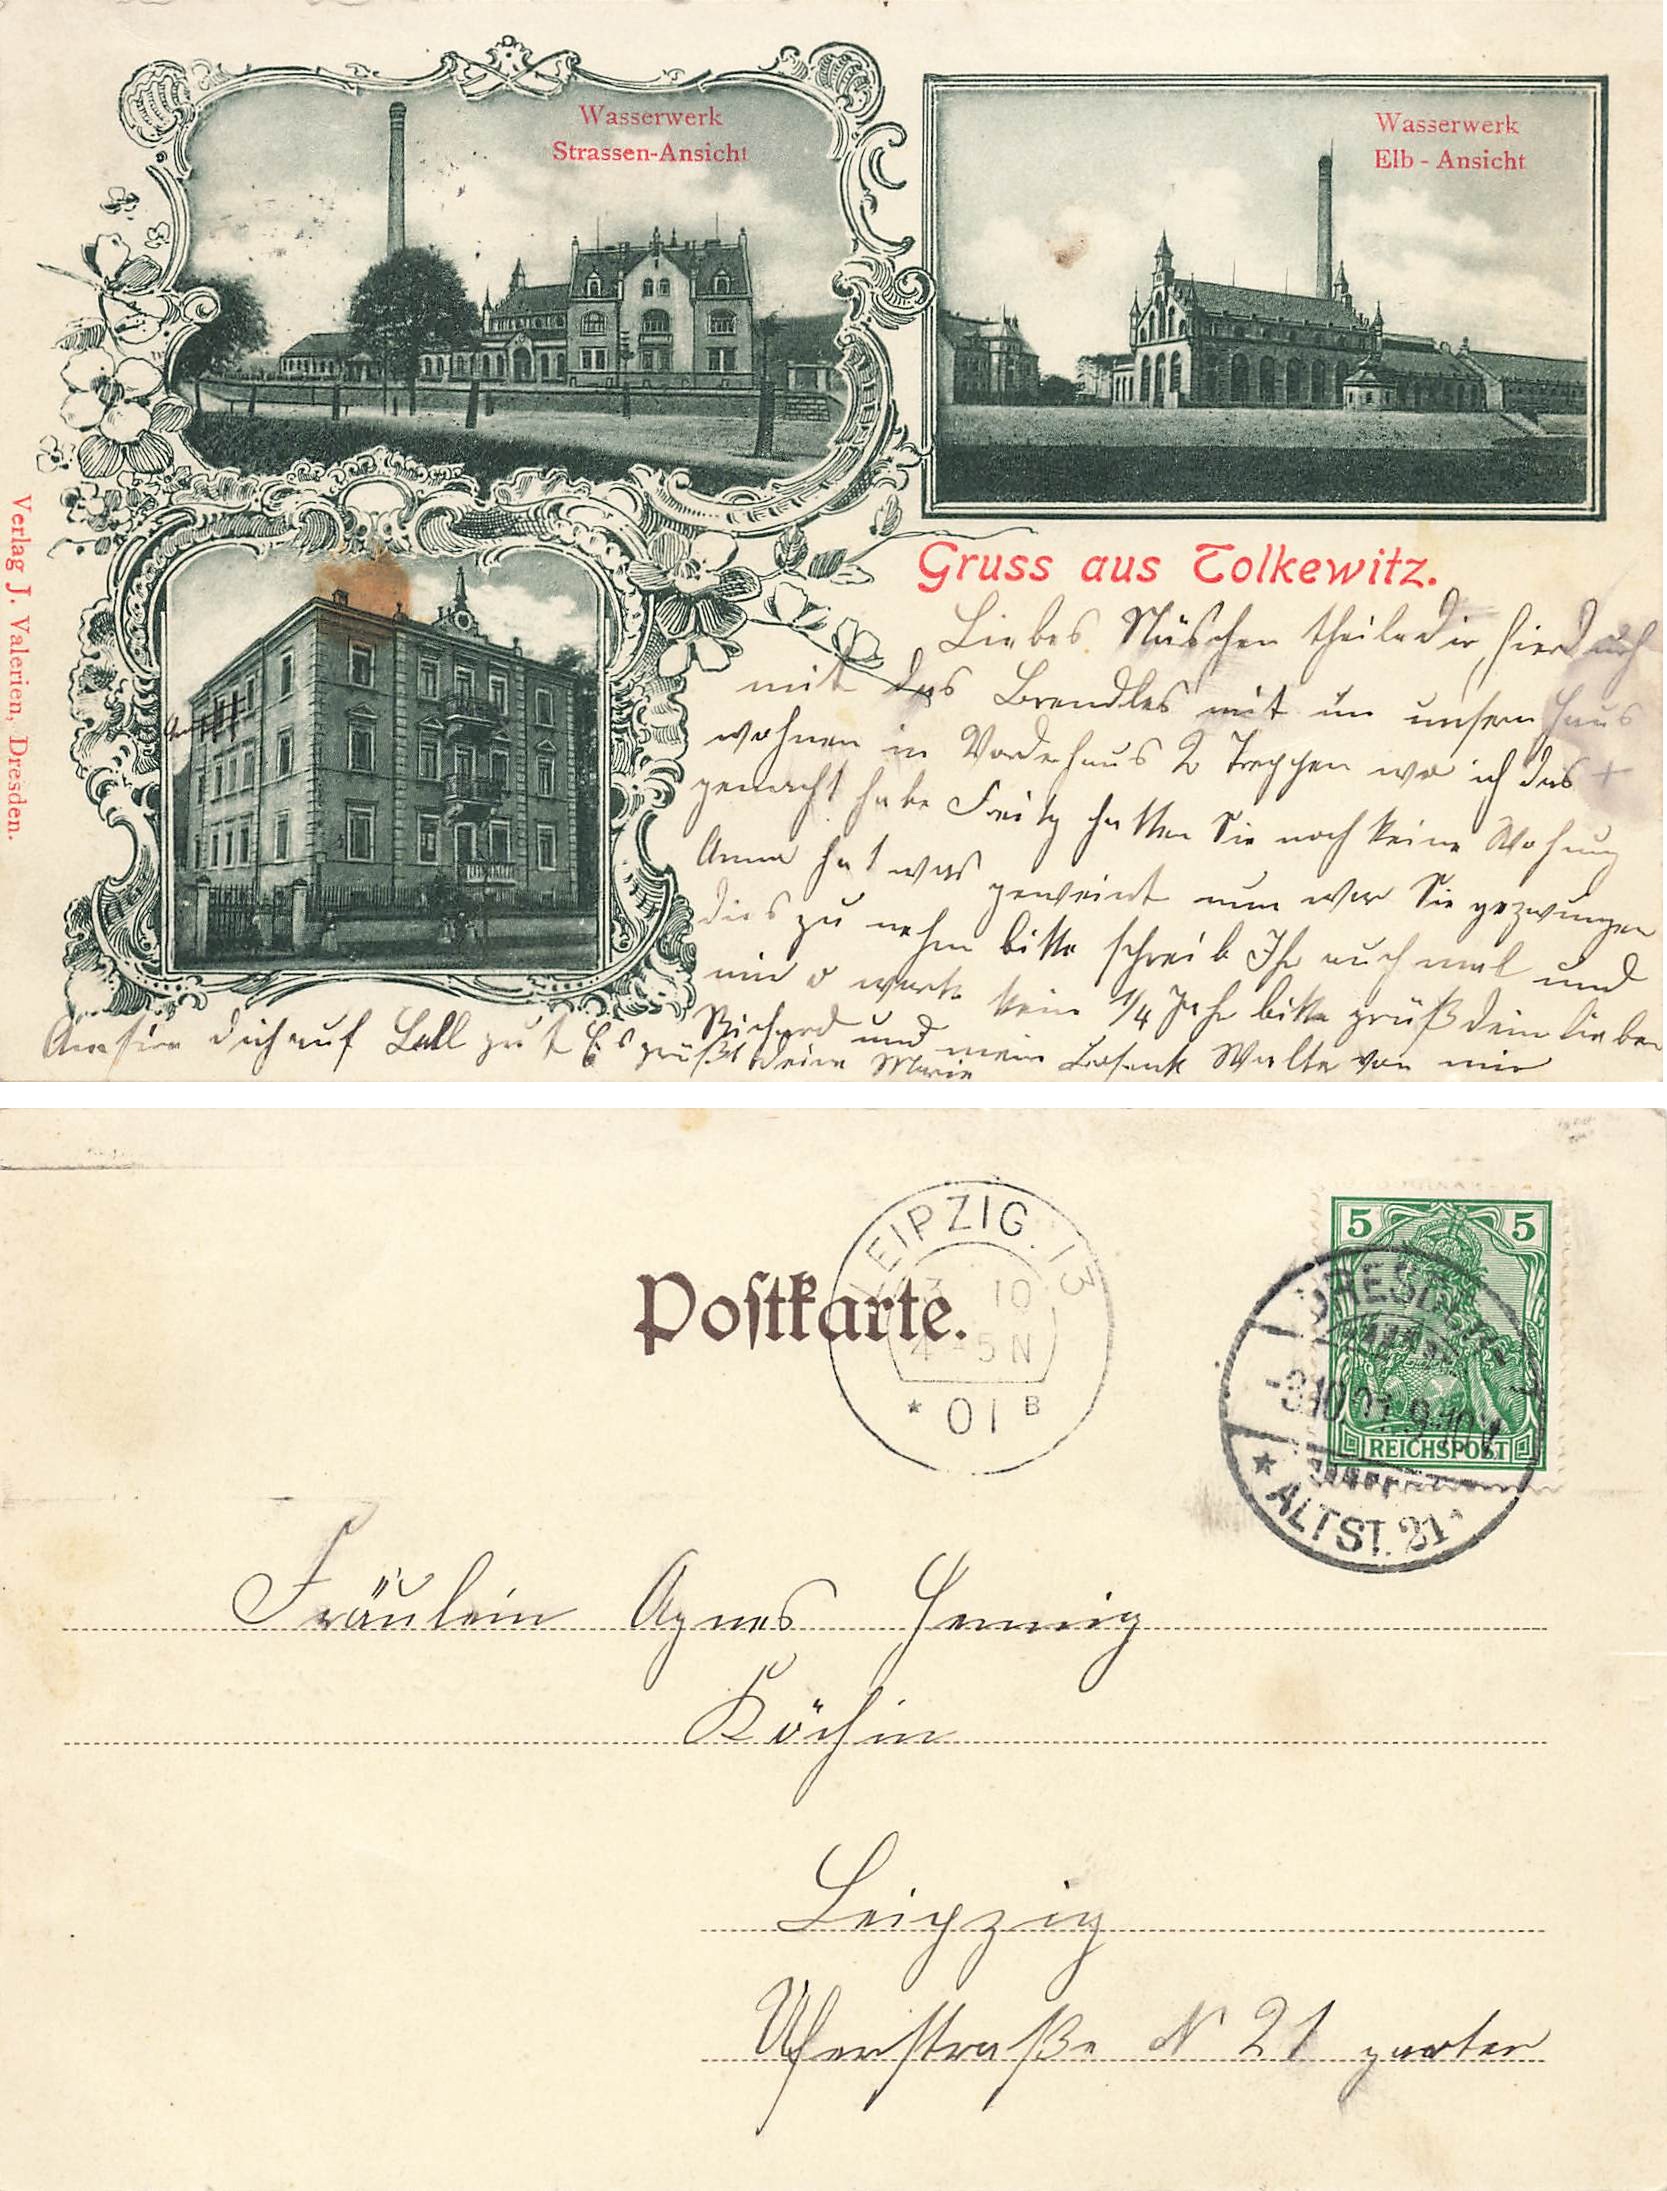 Wasserwerk
Strassen-Ansicht
Wasserwerk
Elb - Ansicht
Verlag J. Valerien, Dresden.
Gruss aus Tolkewitz.
Liebes Näschen theile dir hierdurch
mit das Brendles mit in unsern Haus
wohnen in Vorderhaus 2 Treppen wo ich das +
gemacht habe Freitg hatten Sie noch keine Wohung
Anna hat was geweint nun war Sie gezwungen
dies zu nehm bitte schreib Ihr auch mal und
mir o warte kein 1/4 Jahr bitte grüß dein lieben
Richard und mein Walter von mir
dich auf Ball gut Es grüßt deine Marie
Postkarte.
LEIPZIG. 13
3 10
4-5 N
* 01 B
5 5
REICHSPOST
DRESDEN
-3.10.01. 9-10 V
* ALTST. 21 *
Fräulein Agnes Hennig
Köchin
Leipzig
Uferstraße N 21 parter